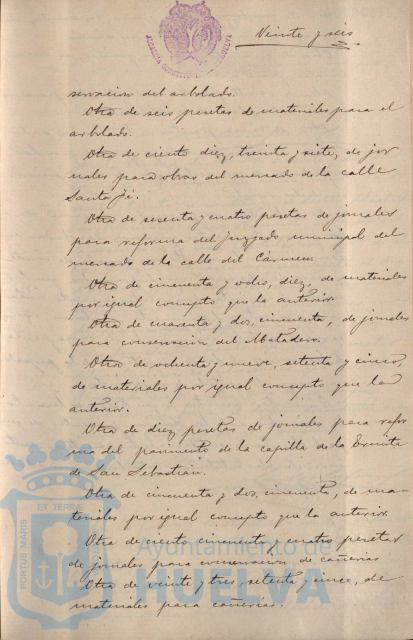 Veinte y seis
servacion del arbolado.
Otra de seis pesetas de materiales para el
arbolado.
Otra de ciento diez, treinta y siete, de jor
nales para obras del mercado de la calle
Santa Fé.
Otra de sesenta y cuatro pesetas de jornales
para reforma del Juzgado municipal del
mercado de la calle del Cármen.
Otra de cincuenta y ocho, diez, de materiales
por igual concepto que la anterior.
Otra de cuarenta y dos, cincuenta, de jornales
para conservacion del Matadero.
Otra de ochenta y nueve, setenta y cinco,
de materiales por igual concepto que la
anterior.
Otra de diez pesetas de jornales para refor
ma del pavimento de la capilla de la Ermita
de San Sebastian.
Otra de cincuenta y dos, cincuenta, de ma-
teriales por igual concepto que la anterior.
Otra de ciento cincuenta y cuatro pesetas
de jornales para conservacion, de cañerias
Otra de veinte y tres, setenta y cinco, de
materiales para cañerias.
PORTUS MARIS
ET TERRÆ
Ayuntamiento de
HUELVA